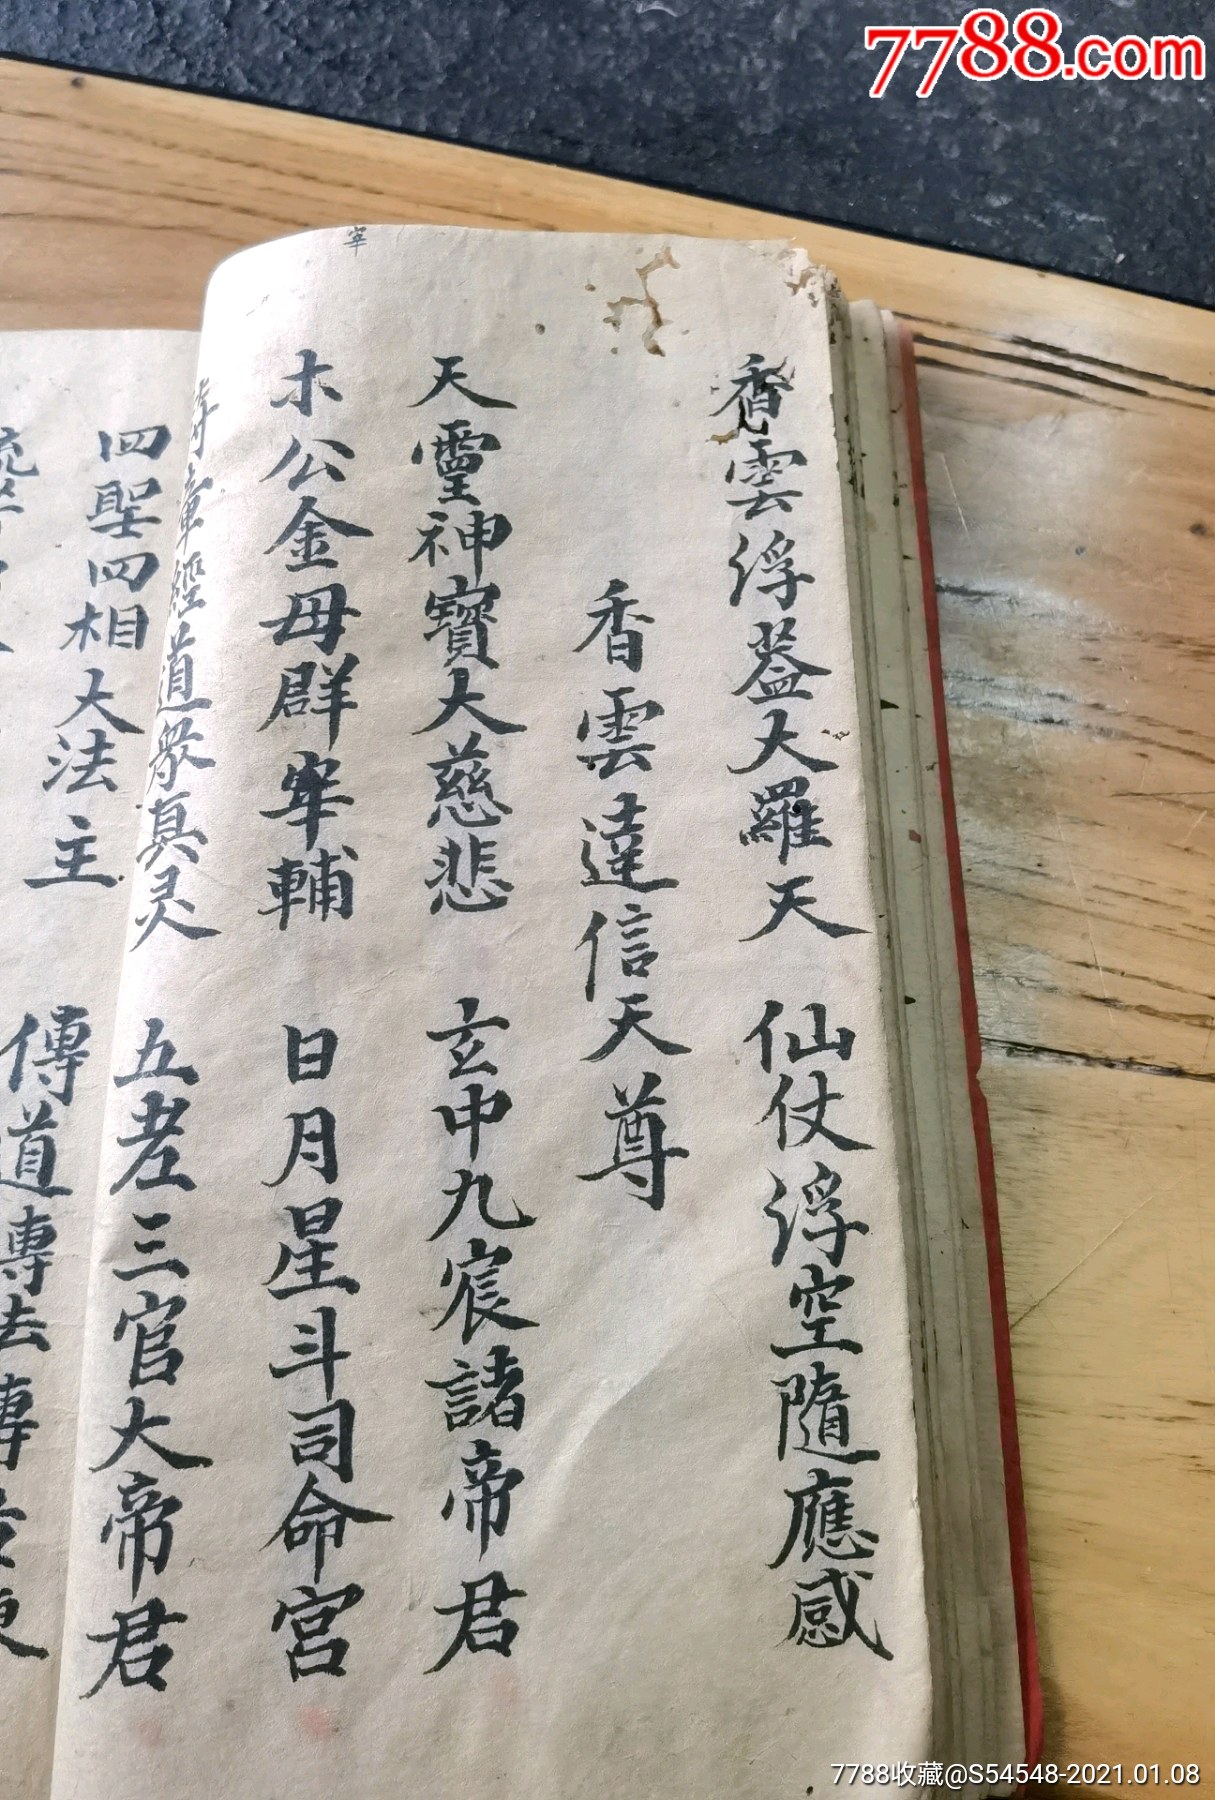 7788.com
宰
香雲浮蓋大羅天 仙仗浮空隨應感
香雲達信天尊
天靈神寶大慈悲 玄中九宸諸帝君
木公金母群宰輔 日月星斗司命宮
經道眾真灵 五老三官大帝君
四聖四相大法主 傳道專法專
7788收藏@S54548-2021.01.08